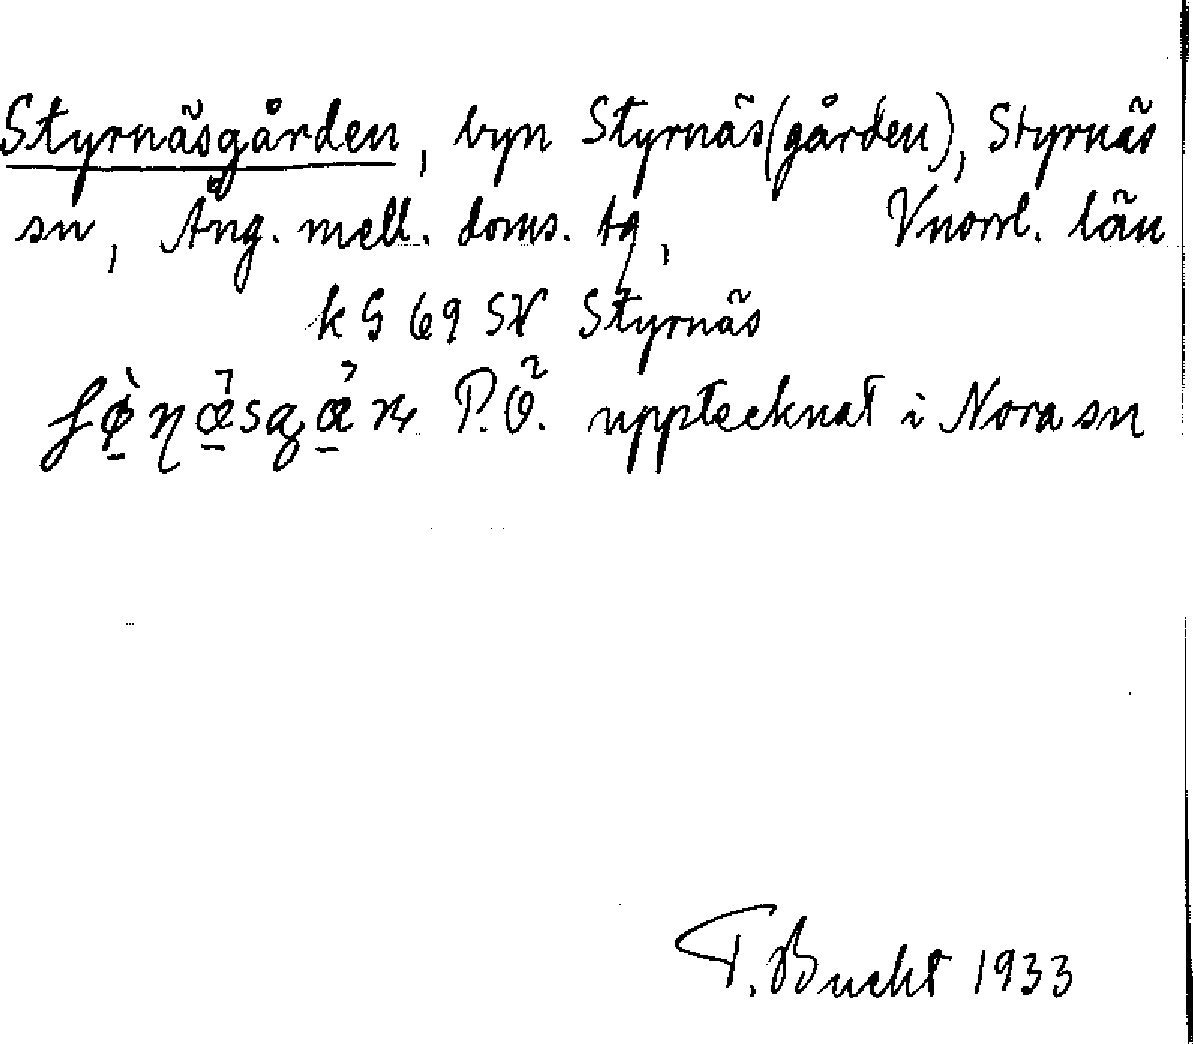 Styrnäsgården, byn Styrnäs(gården), Styrnäs
sn, Ång. mell. doms. tg, Vnorrl. län
k G 69 SV Styrnäs
P.Ö. upptecknat i Nora sn
T. Bucht 1933